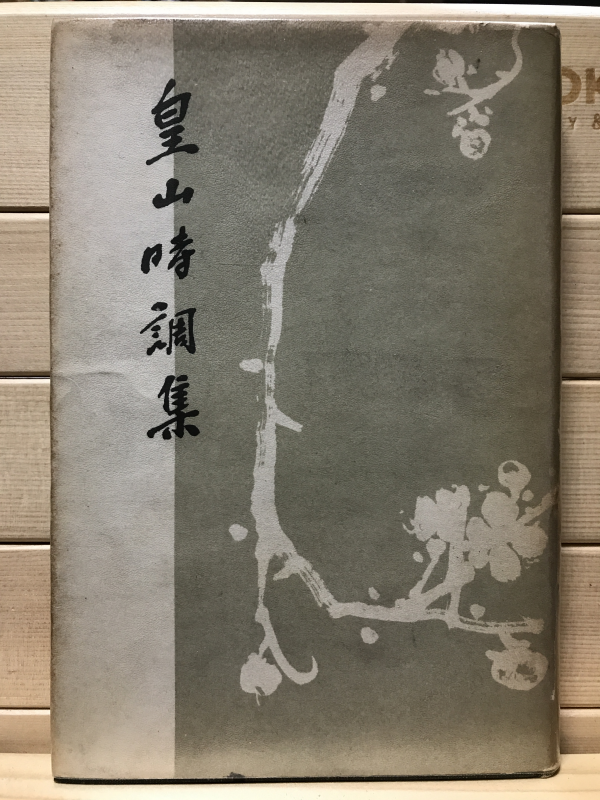 皇山時調集
OK
Y &